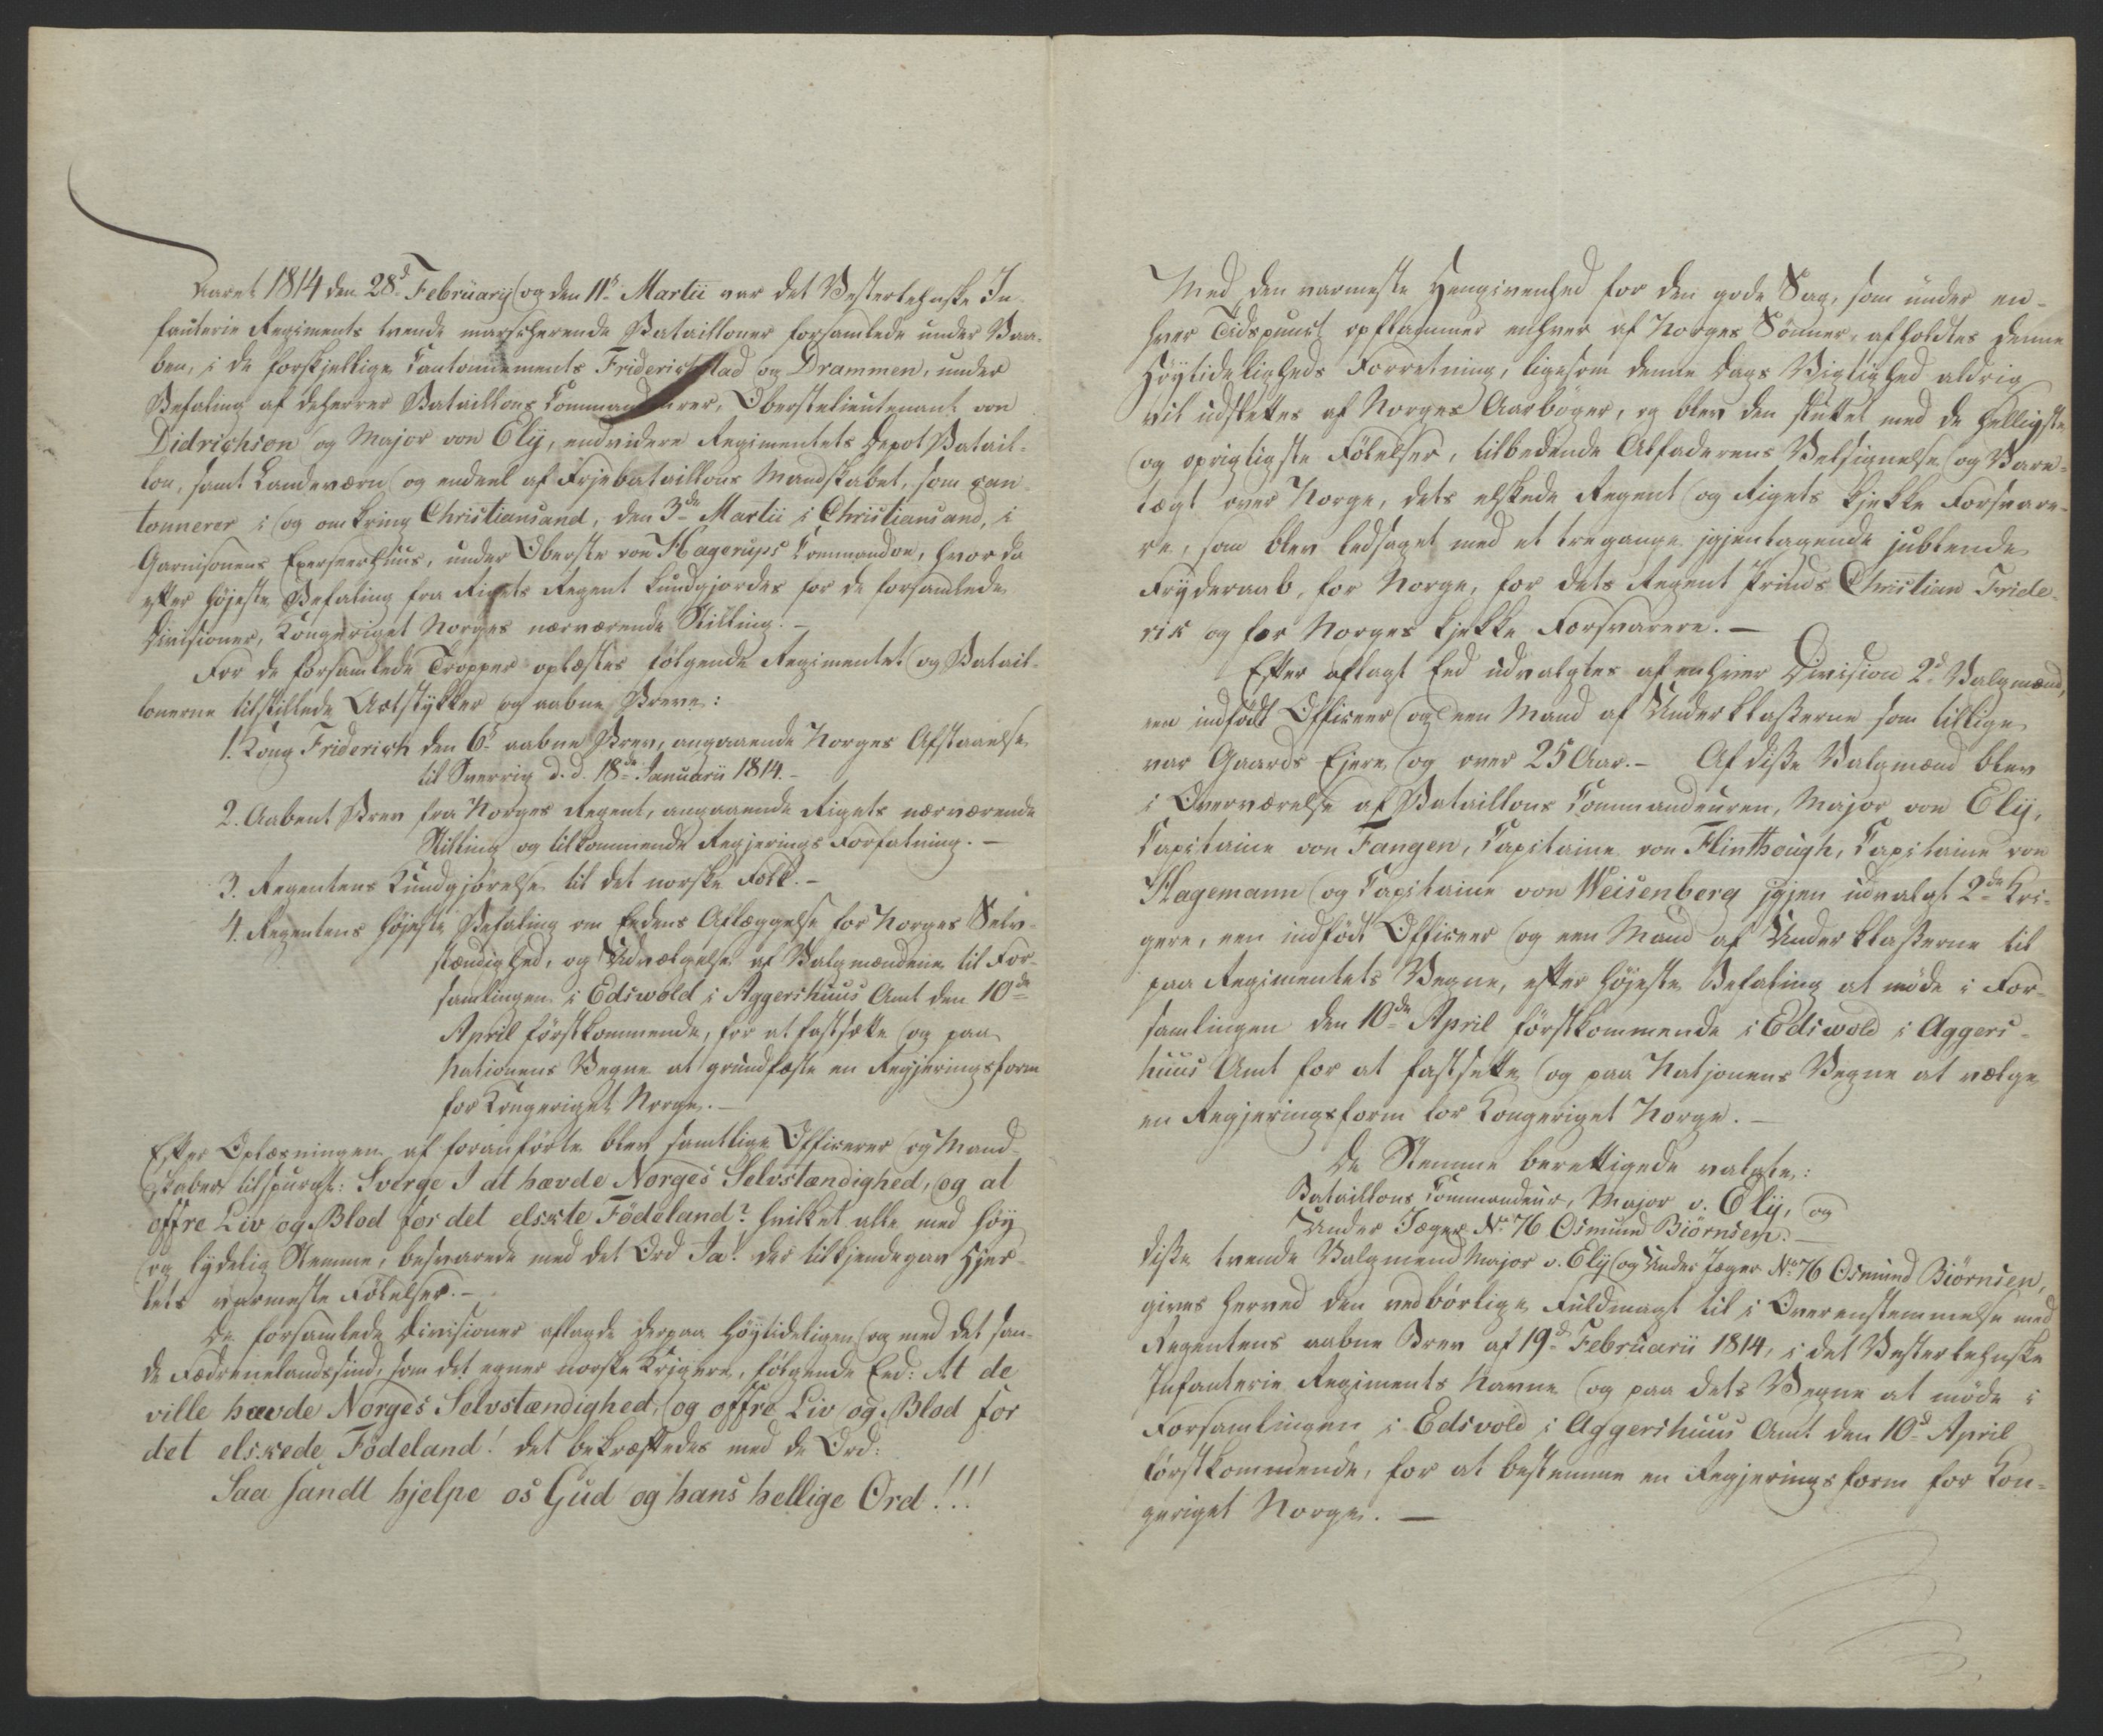 Aaret 1814 den 28d Februarij og den 11t Martii var det Vesterlehnske In-
fanterie Regiments tvende marscherende Batailloner forsamlede under Vaa-
ben, i de forskjellige Cantonnements Friderichstad og Drammen, under
Befaling af deHerrer Bataillons Commandeurer, Oberstelieutenant von
Didrichsen og Major von Ely, endvidere Regimentets Depot Batail-
lon, samt Landeværn og endeel af Frjebataillons Mandskabet, som can-
tonnerer i og omkring Christiansand, den 3de Martii i Christiansand, i
Garnisonens Exerseerhuus, under Oberste von Hagerups Commando, hvor da
efter højeste Befaling fra Rigets Regent kundgjordes for de forsamlede
Divisioner, Kongeriget Norges nærværende Stilling. –
For de forsamlede Tropper oplæstes følgende Regimentet og Batail-
lonerne tilstillede Actstykker og aabne Breve:
1. Kong Friderich den 6t aabne Brev, angaaende Norges Afstaaelse
til Sverrig d. d. 18de Januarii 1814. –
2. Aabent Brev fra Norges Regent, angaaende Rigets nærværende
Stilling og tilkommende Regjerings Forfatning. –
3. Regentens Kundgjørelse til det norske Folk. –
4. Regentens højeste Befaling om Eedens Aflæggelse for Norges Selv-
stændighed, og Udvælgelse af Valgmændene til For-
samlingen i Edswold i Aggershuus Amt den 10de
April førstkommende, for at fastsætte og paa
Nationens Vegne at grundfæste en Regjeringsform
for Kongeriget Norge. –
Efter Oplæsningen af foranførte blev samtlige Officerer og Mand-
skaber tilspurgt: Sverge I at hævde Norges Selvstændighed, og at
offre Liv og Blod for det elskte Födeland? hvilket alle med høy
og lydelig Stemme, besvarede med det Ord Ja! der tilkjendegav Hjer-
tets varmeste Følelser. –
De forsamlede Divisioner aflagde derpaa høytideligen og med det san-
de Fædrenelandssind, som det egner norske Krigere, følgende Eed: At de
ville hævde Norges Selvstændighed, og offre Liv og Blod for
det elskede Födeland! det bekræftedes med de Ord:
Saa sandt hjelpe os Gud og hans hellige Ord!!!
Med den varmeste Hengivenhed for den gode Sag, som under en-
hver Tidspunct opflammer enhver af Norges Sönner, afholdtes denne
Høytideligheds Forretning, ligesom denne Dags Vigtighed aldrig
vil udslettes af Norges Aarbøger, og blev den sluttet med de helligste
og oprigtigste Følelser, tilbedende Alfaderens Velsignelse og Vare-
tægt over Norge, dets elskede Regent og Rigets kjekke Forsvare-
re, som blev ledsaget med et tregange igjentagende jublende
Fryderaab, for Norge, for dets Regent Prinds Christian Fride-
rik og for Norges kjekke Forsvarere. –
Efter aflagt Eed udvalgtes af enhver Division 2d Valgmænd,
een indfødt Officeer og een Mand af Underklasserne som tillige
var Gaards Ejere og over 25 Aar. – Af disse Valgmænd blev
i Overværelse af Bataillons Commandeuren, Major von Ely,
Capitaine von Fangen, Capitaine von Flinthough, Capitaine von
Hagemann og Capitaine von Weisenberg igjen udvalgt 2de Kri-
gere, een indfødt Officeer og een Mand af Underklasserne til
paa Regimentets Vegne, efter højeste Befaling at møde i For-
samlingen den 10de April førstkommende i Edswold i Aggers-
huus Amt for at fastsette og paa Natjonens Vegne at vælge
en Regjeringsform for Kongeriget Norge. –
De Stemme berettigede valgte:
Bataillons Commandeur, Major v. Ely, og
Under Jæger No 76 Osmund Biörnsen. –
Disse tvende Valgmend Major v. Ely og Under Jæger No 76 Osmund Biörnsen,
gives herved den vedbørlige Fuldmagt til i Overenstemmelse med
Regentens aabne Brev af 19d Februarii 1814, i det Vesterlehnske
Infanterie Regiments Navne og paa dets Vegne at møde i
Forsamlingen i Edsvold i Aggershuus Amt den 10d April
førstkommende, for at bestemme en Regjeringsform for Kon-
geriget Norge. –